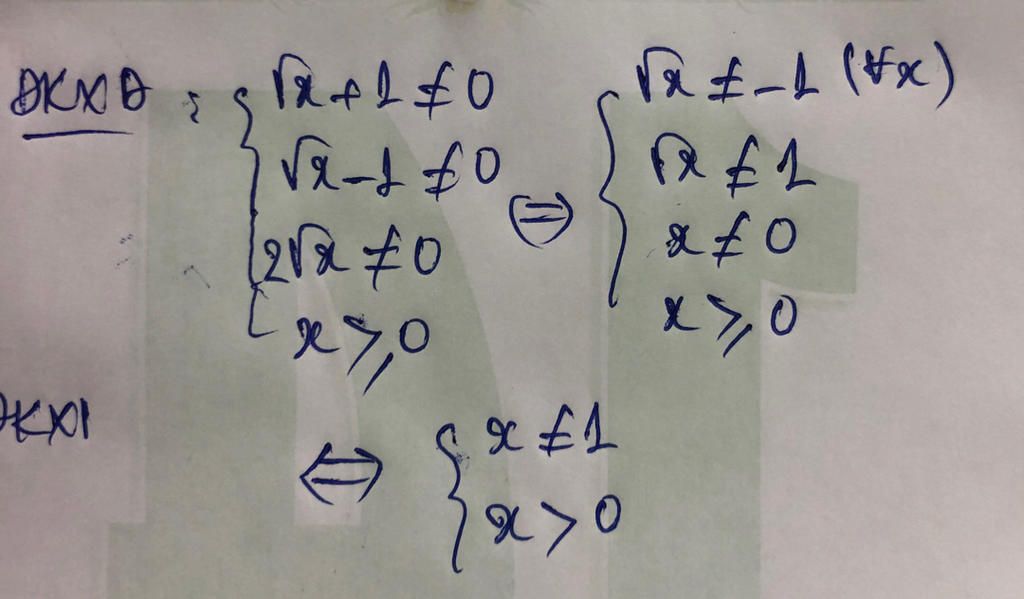 ĐKXĐ : { √x + 1 ≠ 0
√x - 1 ≠ 0
2√x ≠ 0
x ⩾ 0
⇔ { √x ≠ -1 (∀x)
√x ≠ 1
x ≠ 0
x ⩾ 0
ĐKXĐ
⇔ { x ≠ 1
x > 0